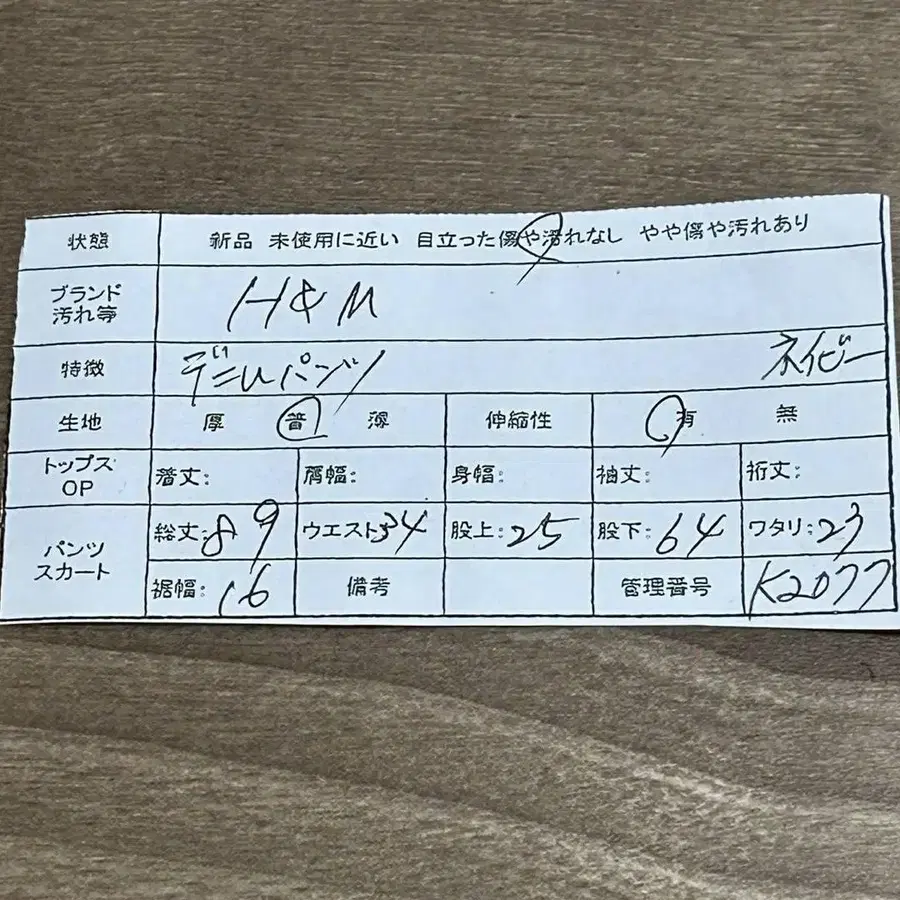 状態 新品 未使用に近い 目立った傷や汚れなし やや傷や汚れあり
ブランド 汚れ等 H&M
特徴 デニムパンツ ネイビー
生地 厚 普 薄 伸縮性 有 無
トップス OP 着丈: 肩幅: 身幅: 袖丈: 裄丈:
パンツ スカート 総丈:89 ウエスト34 股上:25 股下:64 ワタリ:23
裾幅:16 備考 管理番号 K2077